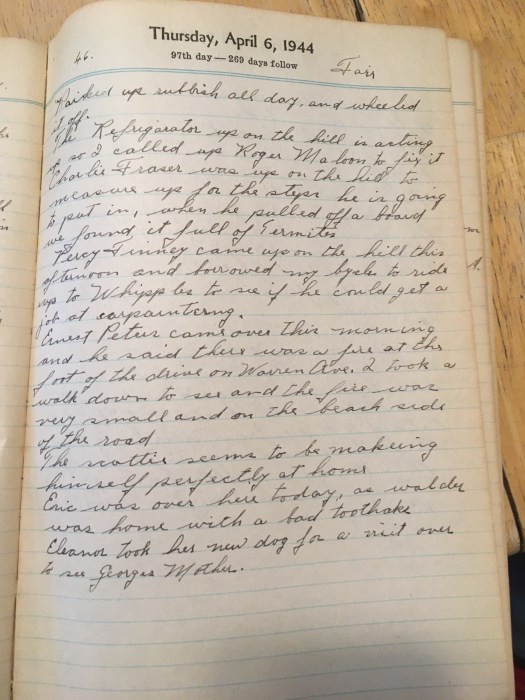 Thursday, April 6, 1944
97th day—269 days follow
46.
Fair
Paiked up rubbish all day, and wheeled
it off.
The Refrigarator up on the hill is acting
up so I called up Roger Maloon to fix it
Charlie Fraser was up on the hill to
measure up for the steps he is going
to put in, when he pulled off a board
we found it full of Termites
Percy Finney came up on the hill this
afternoon and borrowed my bycle to ride
up to Whipples to see if he could get a
job at carpaintering.
Ernest Peters came over this morning
and he said there was a fire at the
foot of the drive on Warren Ave. I took a
walk down to see and the fire was
very small and on the beach side
of the road
The scottie seems to be makeing
himself perfectly at home
Eric was over here today, as walder
was home with a bad toothake
Eleanor took her new dog for a visit over
to see Georges Mother.